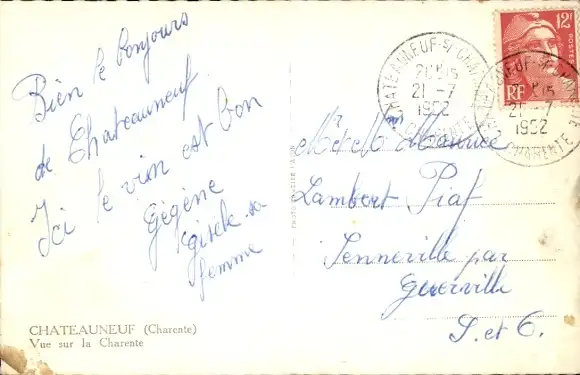 Bien le bonjours
de Chateauneuf
Ici le vin est bon
Gégène
Gisèle sa
femme
CHATEAUNEUF (Charente)
Vue sur la Charente
12F
POSTES
RF
CHATEAUNEUF-S/-CHARENTE
21H15
21 -7
1952
CHARENTE
21 -7
1952
CHARENTE
M et Me Maurice
Lambert Piaf
Senneville par
Guerville
S. et O.